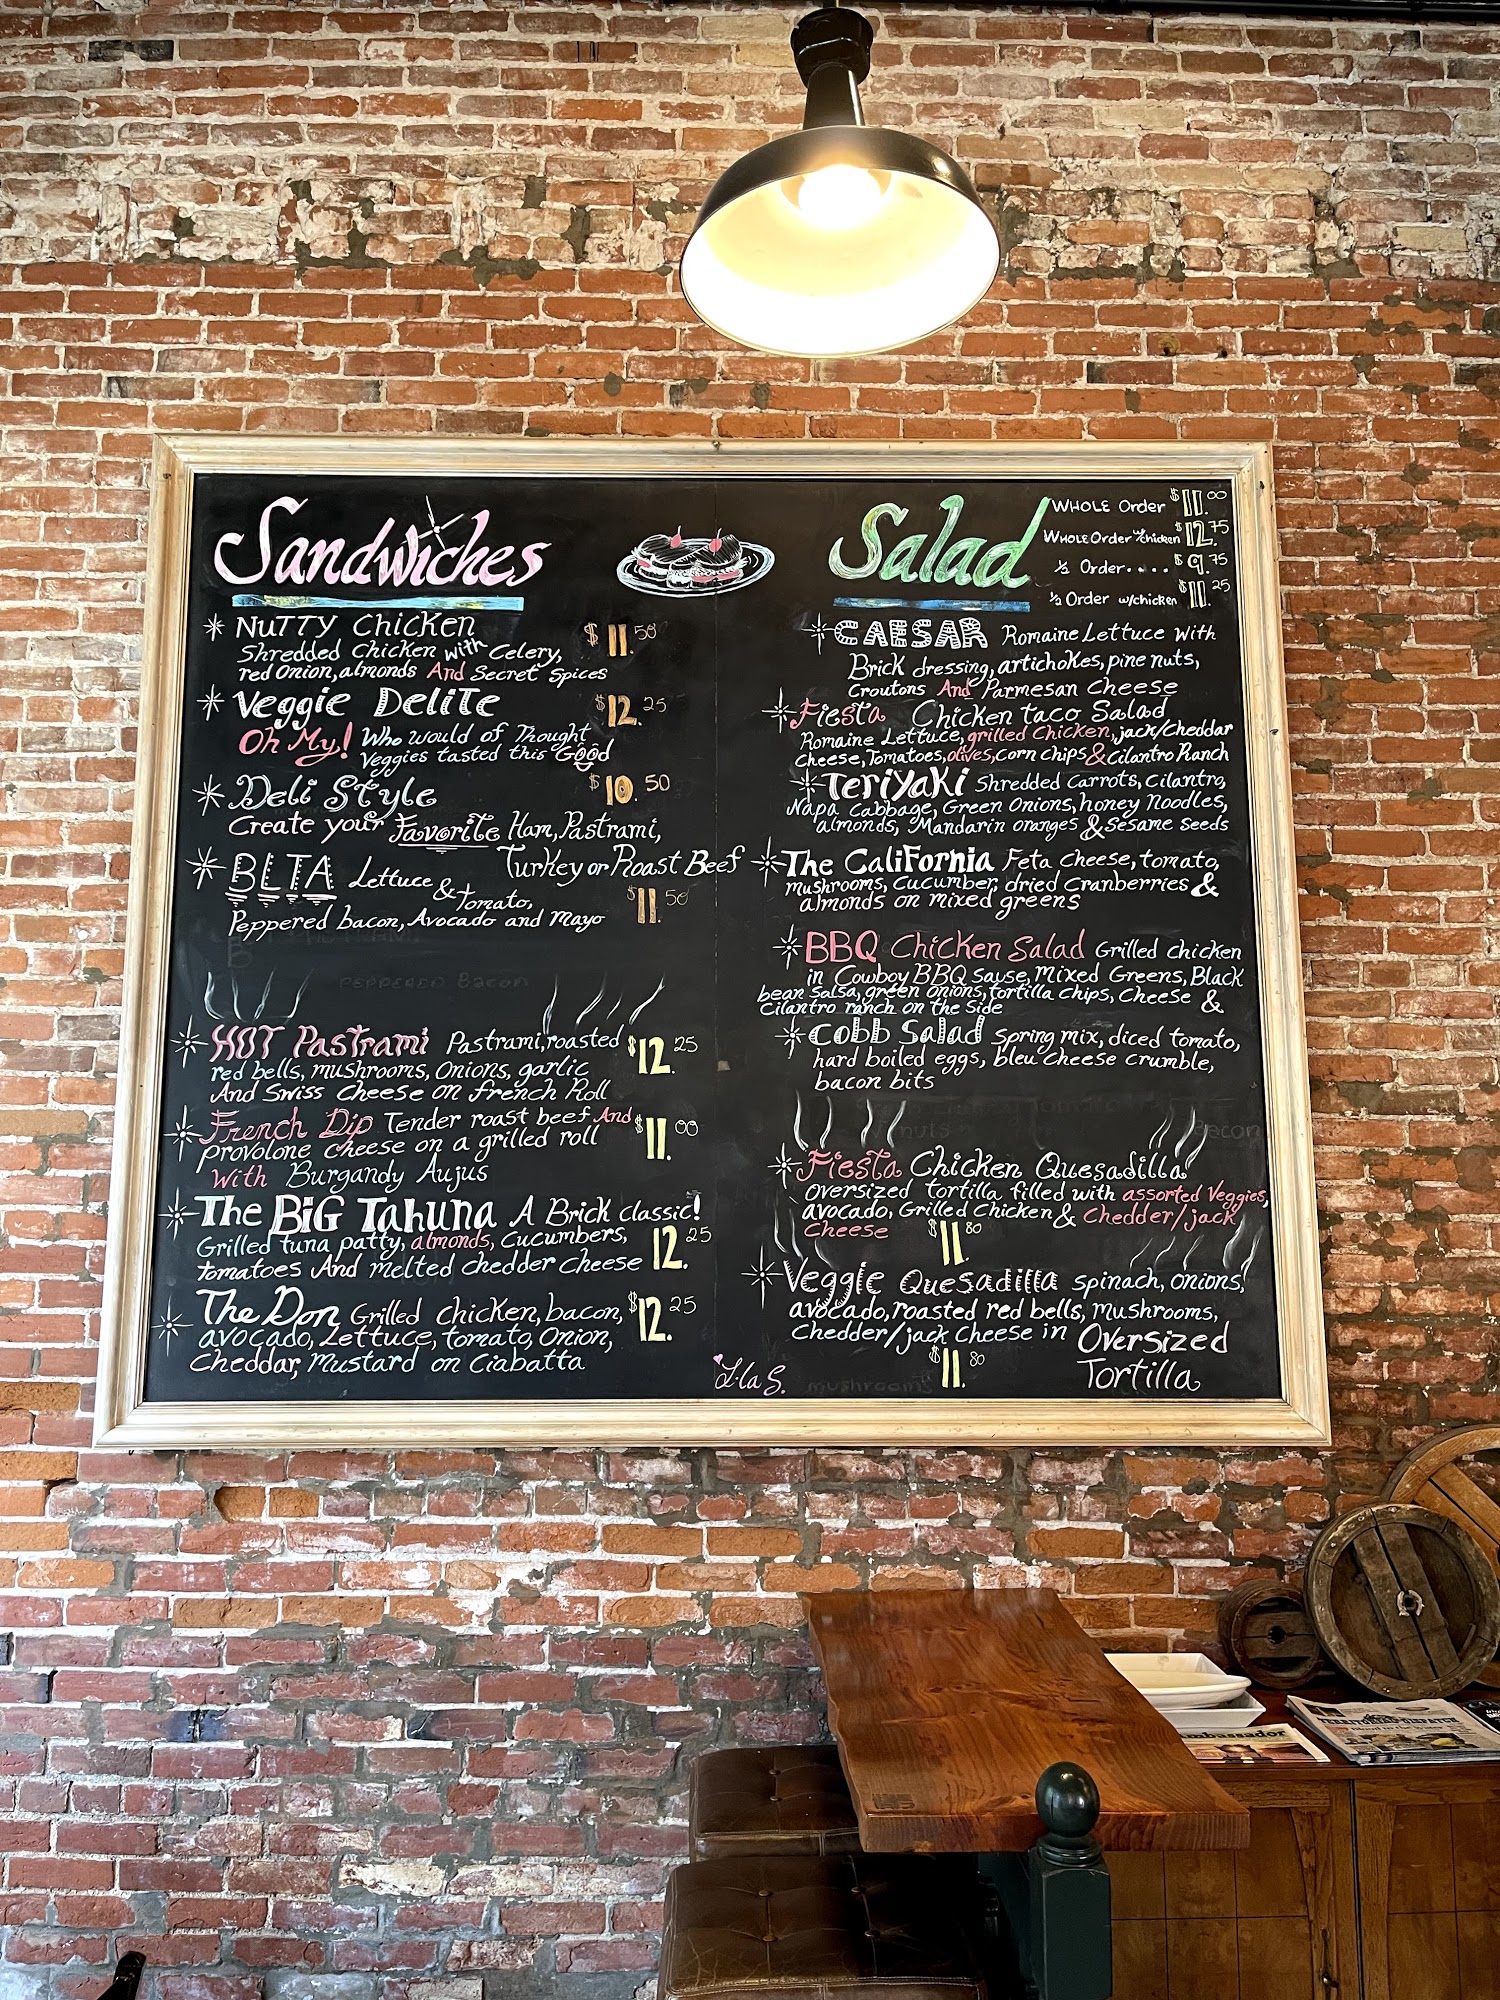 Sandwiches
* NuTTY Chicken $11.50
Shredded Chicken with Celery,
red Onion, almonds And Secret Spices
* Veggie Delite $12.25
Oh My! Who would of Thought
Veggies tasted this Good
* Deli Style $10.50
Create your Favorite Ham, Pastrami,
Turkey or Roast Beef
* BLTA Lettuce & Tomato, $11.50
Peppered bacon, Avocado and Mayo
PEPPERED Bacon
* HOT Pastrami Pastrami, roasted $12.25
red bells, mushrooms, Onions, garlic
And Swiss Cheese on french Roll
* French Dip Tender roast beef And $11.00
provolone cheese on a grilled roll
With Burgandy Aujus
* The BiG Tahuna A Brick classic!
Grilled tuna patty, almonds, cucumbers, 12.25
tomatoes And melted chedder cheese
* The Don Grilled chicken, bacon, $12.25
avocado, Lettuce, tomato, Onion,
Cheddar, mustard on Ciabatta
Salad
WHOLE Order $11.00
WHOLE Order w/chicken $12.75
½ Order.... $9.75
½ Order w/chicken $11.25
* CAESAR Romaine Lettuce with
Brick dressing, artichokes, pine nuts,
Croutons And Parmesan Cheese
* Fiesta Chicken taco Salad
Romaine Lettuce, grilled Chicken, jack/cheddar
cheese, Tomatoes, olives, corn chips & Cilantro Ranch
* Teriyaki Shredded Carrots, Cilantro,
Napa Cabbage, Green Onions, honey Noodles,
almonds, Mandarin oranges & Sesame Seeds
* The CaliFornia Feta cheese, tomato,
mushrooms, cucumber, dried cranberries &
almonds on mixed greens
* BBQ Chicken Salad Grilled chicken
in Cowboy BBQ sause, Mixed Greens, Black
bean Salsa, green onions, tortilla chips, Cheese &
Cilantro ranch on the Side
* Cobb Salad Spring mix, diced tomato,
hard boiled eggs, bleu cheese crumble,
bacon bits
Bacon
* Fiesta Chicken Quesadilla
Oversized tortilla filled with assorted Veggies,
avocado, Grilled Chicken & Chedder/jack
Cheese $11.80
* Veggie Quesadilla spinach, onions,
avocado, roasted red bells, mushrooms,
Chedder/jack Cheese in Oversized
Tortilla
$11.80
mushrooms